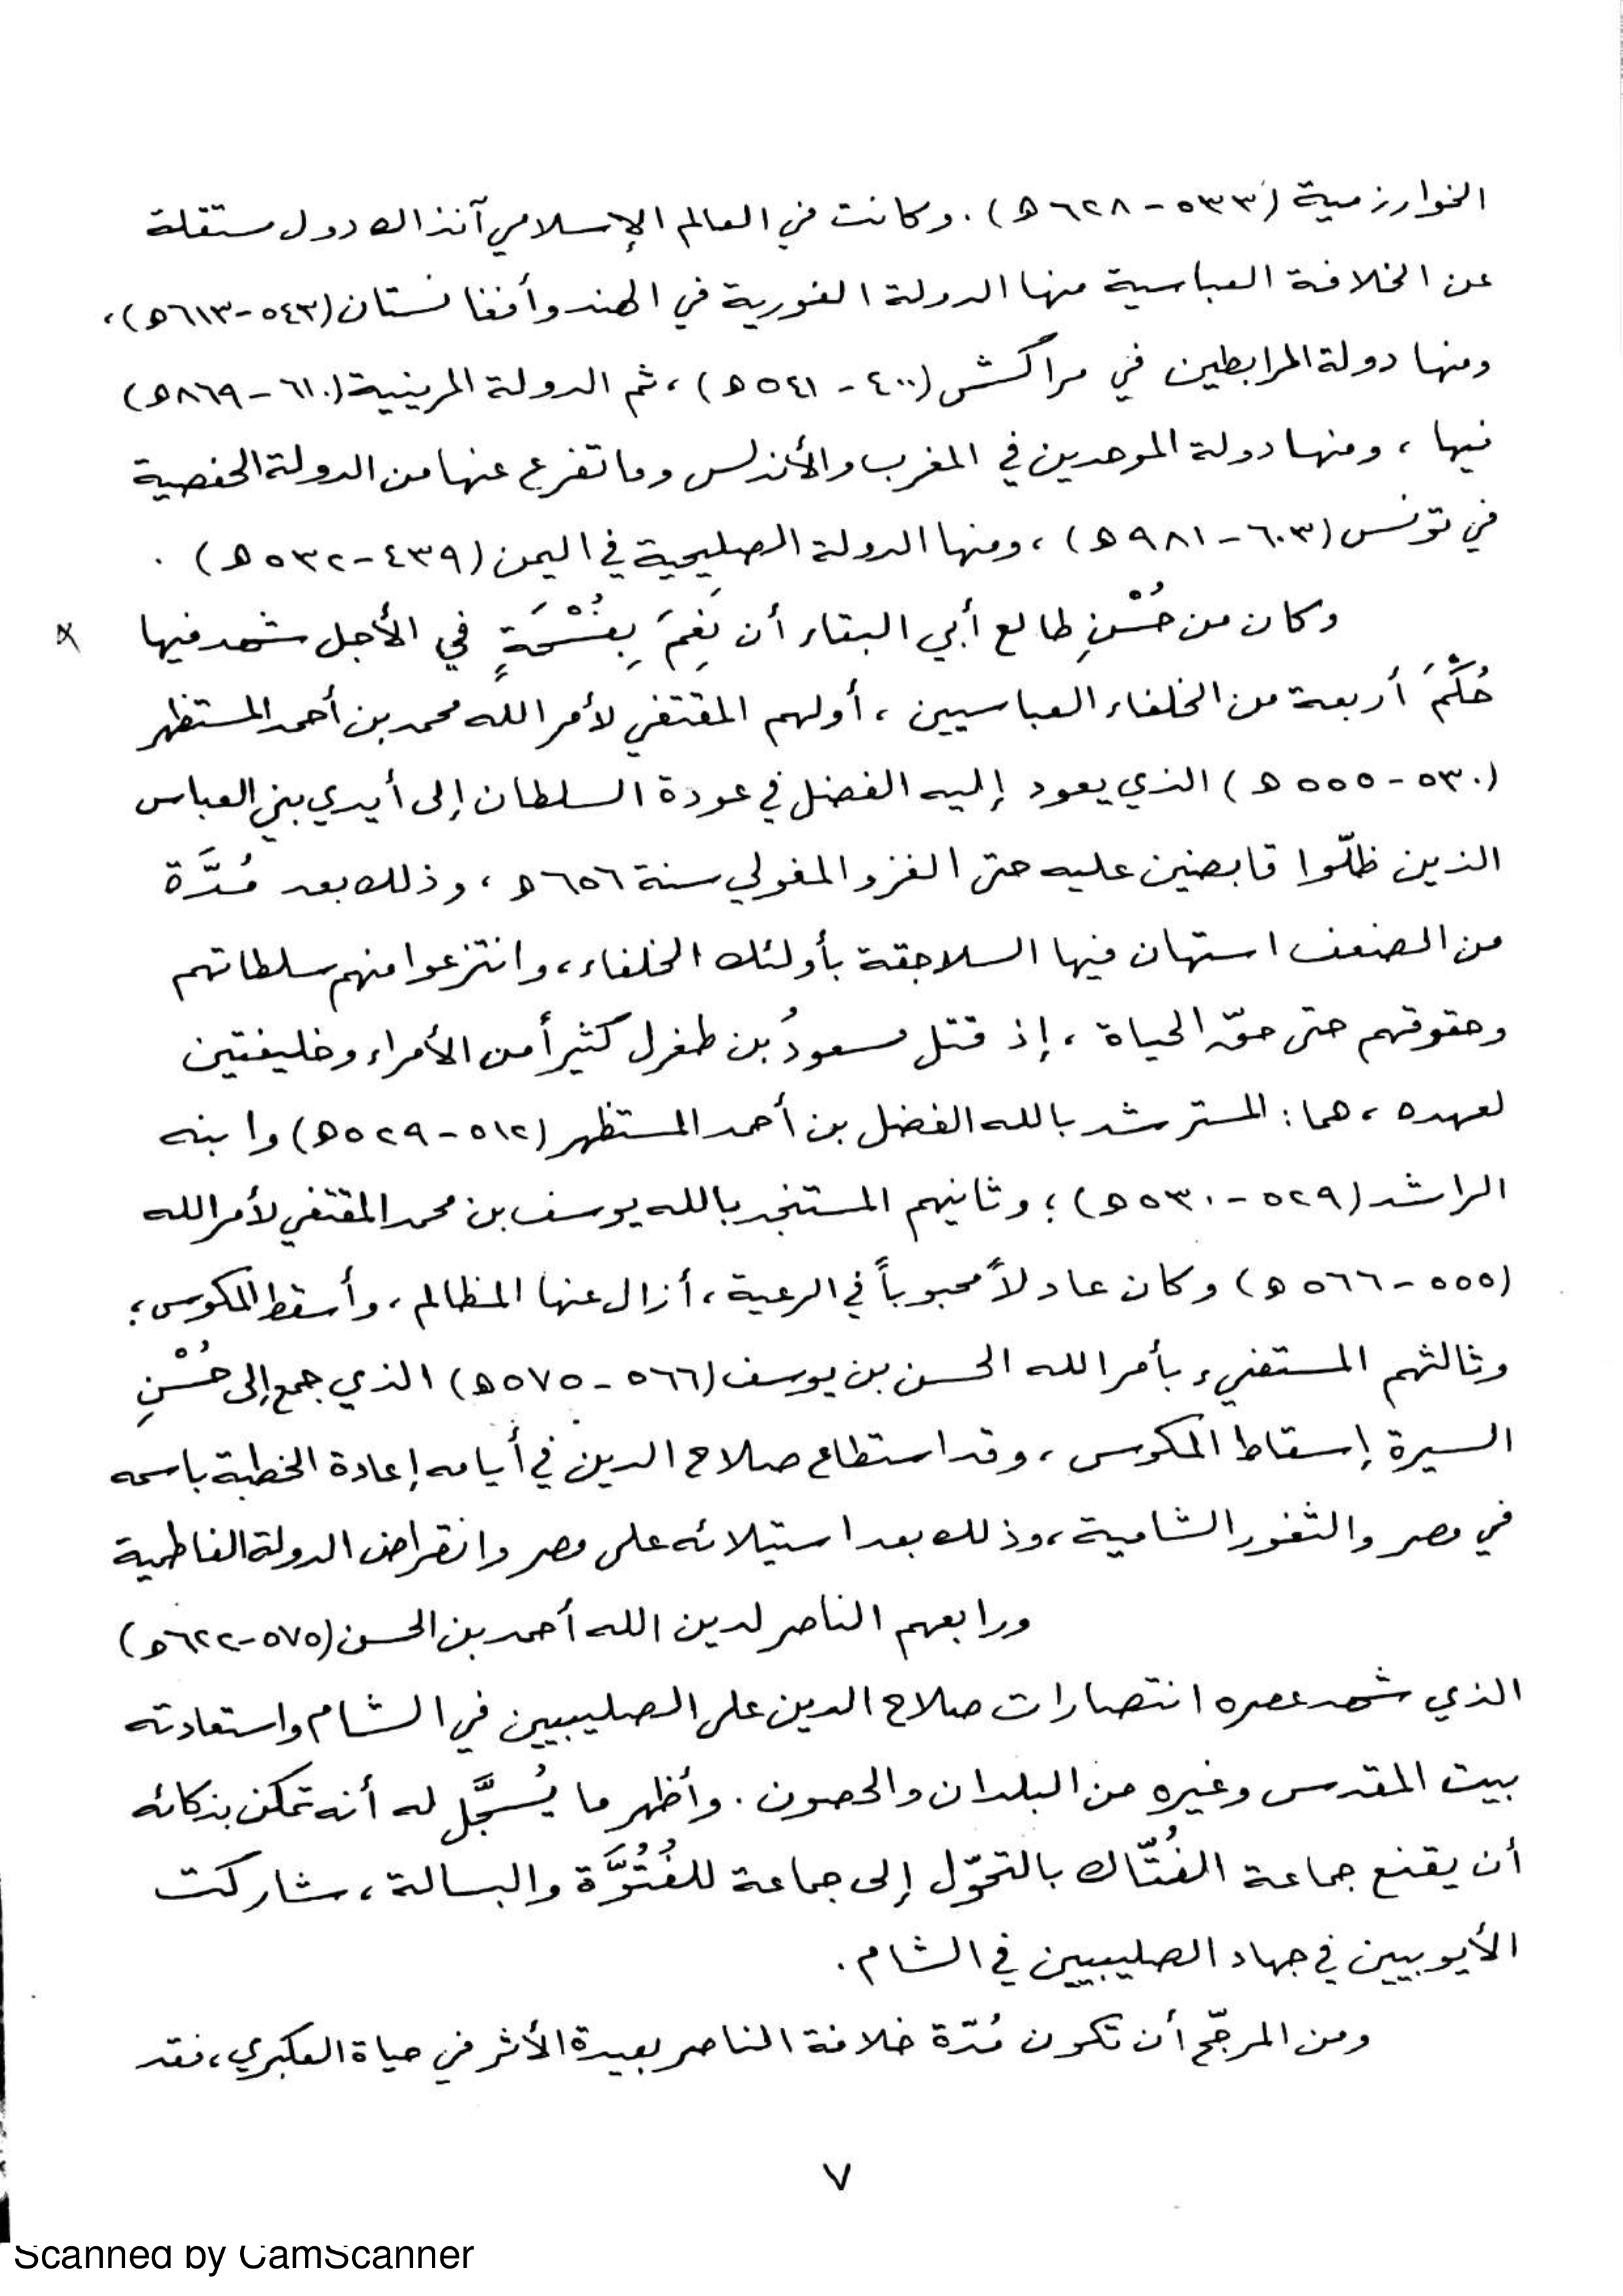 الخوارزمية (٥٣٣-٦٢٨هـ). وكانت في العالم الإسلامي آنذاك دول مستقلة
عن الخلافة العباسية منها الدولة الغورية في الهند وأفغانستان (٥٤٣-٦١٣هـ)،
ومنها دولة المرابطين في مراكش (٤٠٠-٥٤١هـ)، ثم الدولة المرينية (٦١٠-٨٦٩هـ)
فيها، ومنها دولة الموحدين في المغرب والأندلس وما تفرع عنها من الدولة الحفصية
في تونس (٦٠٣-٩٨١هـ)، ومنها الدولة الصليحية في اليمن (٤٣٩-٥٣٢هـ).
وكان من حُسْنِ طالع أبي البقاء أن نَعِمَ بِفُسْحَةٍ في الأجل شهد فيها
حُكْمَ أربعة من الخلفاء العباسيين، أولهم المقتفي لأمر الله محمد بن أحمد المستظهر
(٥٣٠-٥٥٥هـ) الذي يعود إليه الفضل في عودة السلطان إلى أيدي بني العباس
الذين ظلّوا قابضين عليه حتى الغزو المغولي سنة ٦٥٦هـ، وذلك بعد مُدَّة
من الضعف استهان فيها السلاجقة بأولئك الخلفاء، وانتزعوا منهم سلطاتهم
وحقوقهم حتى حقّ الحياة، إذ قتل مسعودُ بن طغرل كثيراً من الأمراء وخليفتين
لعهده، هما: المسترشد بالله الفضل بن أحمد المستظهر (٥١٢-٥٢٩هـ) وابنه
الراشد (٥٢٩-٥٣٠هـ)؛ وثانيهم المستنجد بالله يوسف بن محمد المقتفي لأمر الله
(٥٥٥-٥٦٦هـ) وكان عادلاً محبوباً في الرعية، أزال عنها المظالم، وأسقط المكوس؛
وثالثهم المستضيء بأمر الله الحسن بن يوسف (٥٦٦-٥٧٥هـ) الذي جمع إلى حُسْنِ
السيرة إسقاط المكوس، وقد استطاع صلاح الدين في أيامه إعادة الخطبة باسمه
في مصر والثغور الشامية، وذلك بعد استيلائه على مصر وانقراض الدولة الفاطمية
ورابعهم الناصر لدين الله أحمد بن الحسن (٥٧٥-٦٢٢هـ)
الذي شهد عصره انتصارات صلاح الدين على الصليبيين في الشام واستعادته
بيت المقدس وغيره من البلدان والحصون. وأظهر ما يُسجَّل له أنه تمكن بذكائه
أن يقنع جماعة الفُتّاك بالتحوّل إلى جماعة للفُتُوَّة والبسالة، شاركت
الأيوبيين في جهاد الصليبيين في الشام.
ومن المرجّح أن تكون مُدّة خلافة الناصر بعيدة الأثر في حياة العكبري، فقد
٧
Scanned by CamScanner